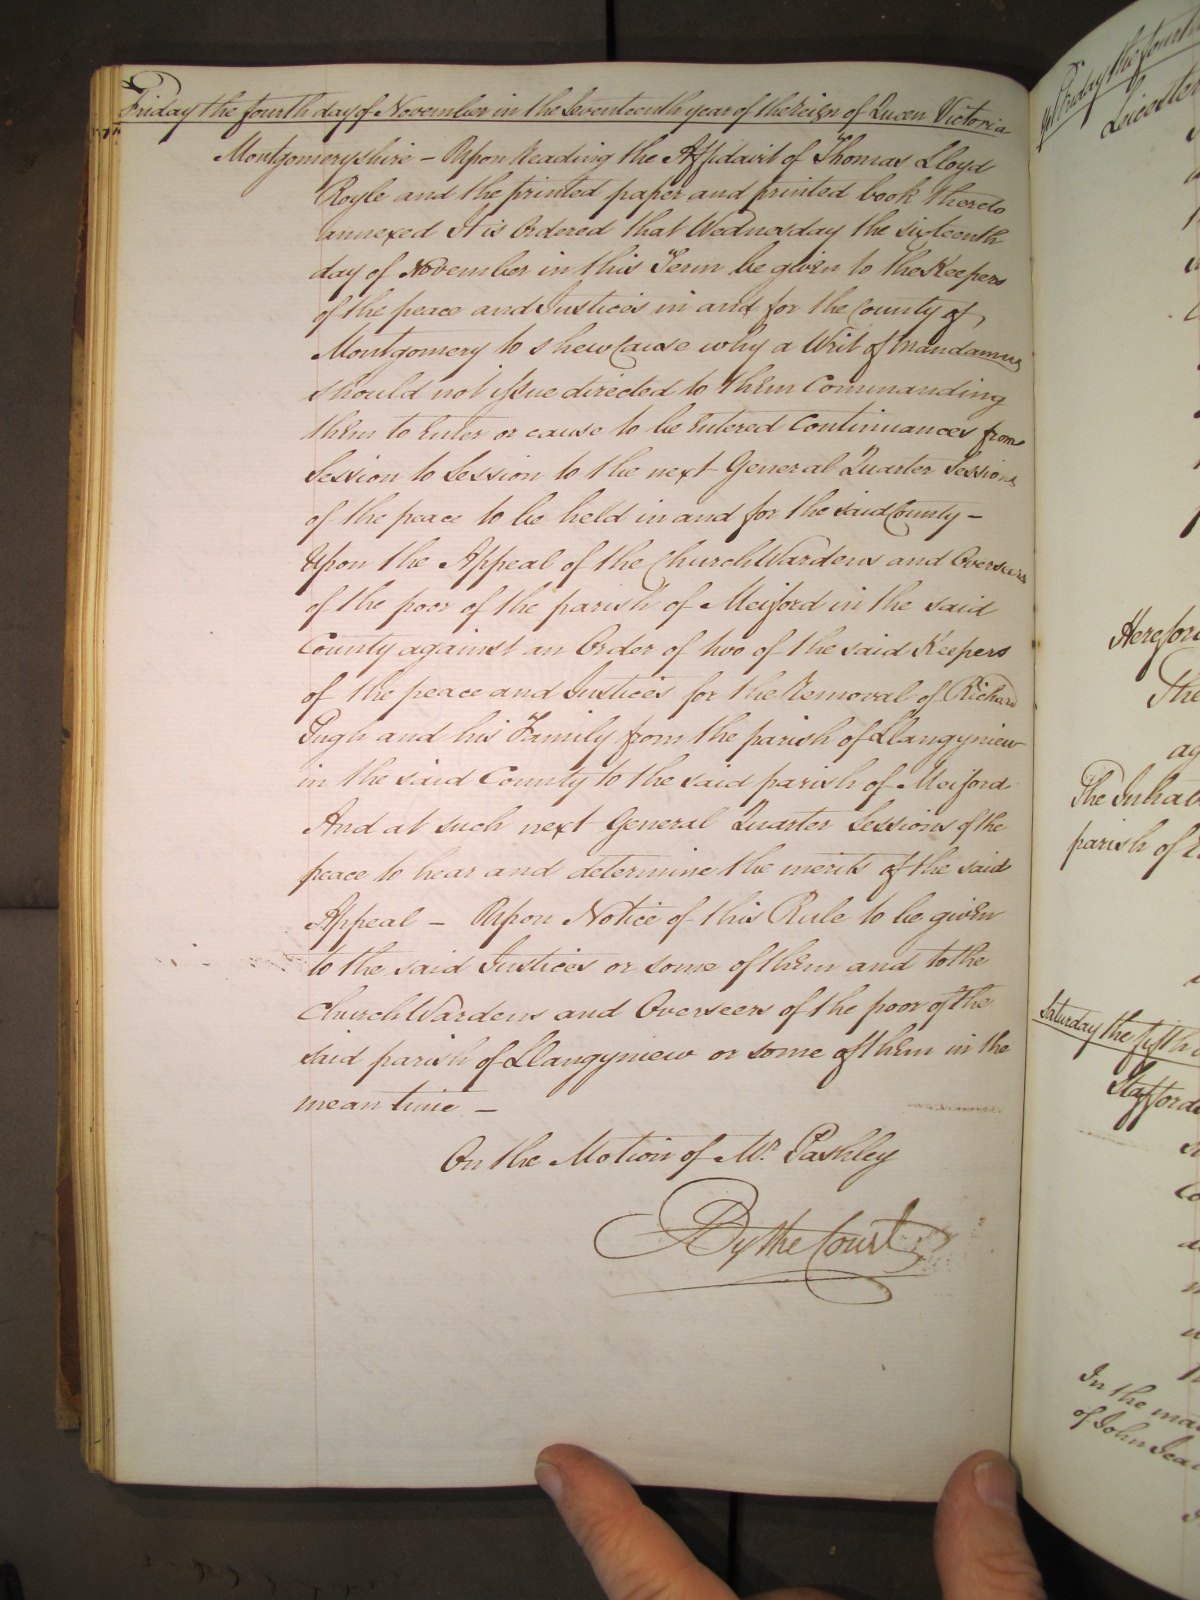 Friday the fourth day of November in the Seventeenth year of the reign of Queen Victoria
Montgomeryshire – Upon Reading the Affidavit of Thomas Lloyd
Royle and the printed paper and printed book thereto
annexed It is Ordered that Wednesday the sixteenth
day of November in this Term be given to the Keepers
of the peace and Justices in and for the County of
Montgomery to shew Cause why a Writ of Mandamus
should not issue directed to them Commanding
them to Enter or cause to be Entered Continuances from
Session to Session to the next General Quarter Sessions
of the peace to be held in and for the said County –
Upon the Appeal of the Church Wardens and Overseers
of the poor of the parish of Meiford in the said
County against an Order of two of the said Keepers
of the peace and Justices for the Removal of Richard
Pugh and his Family from the parish of Llangyniew
in the said County to the said parish of Meiford
And at such next General Quarter Sessions of the
peace to hear and determine the merits of the said
Appeal – Upon Notice of this Rule to be given
to the said Justices or some of them and to the
Church Wardens and Overseers of the poor of the
said parish of Llangyniew or some of them in the
mean time –
On the Motion of Mr. Pashley
By the Court
Friday the fourth
Leicester
Hereford
The
The Inhab
parish of
Saturday the fifth
Stafford
In the ma
of John